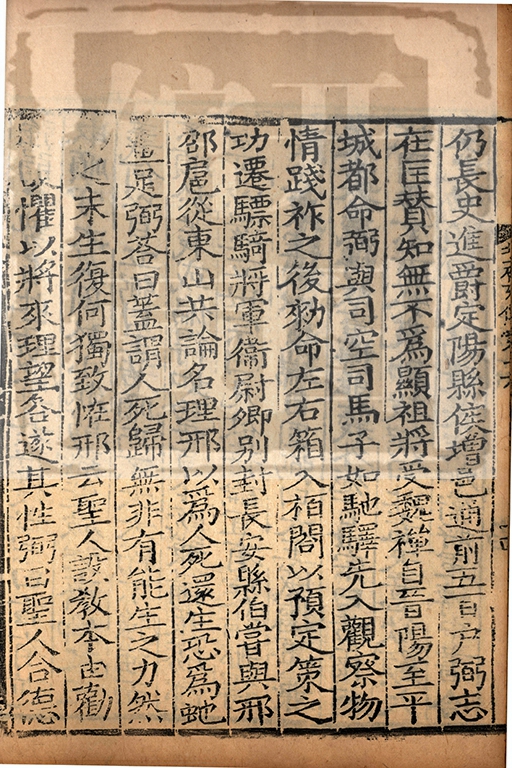 仍長史進爵定陽縣侯增邑通前五百戶弼志
在匡贊知無不爲顯祖將受魏禪自晉陽至平
城都命弼與司空司馬子如馳驛先入觀察物
情踐祚之後勑命左右箱入栢閤以預定策之
功遷驃騎將軍衞尉卿别封長安縣伯嘗與邢
邵扈從東山共論名理邢以爲人死還生恐爲虵
畫足弼荅曰蓋謂人死歸無非有能生之力然
之未生復何獨致恠邢云聖人設教本由勸
懼以將來理望各遂其性弼曰聖人合德